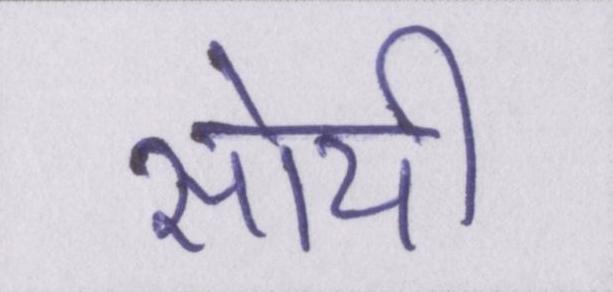 सोयी